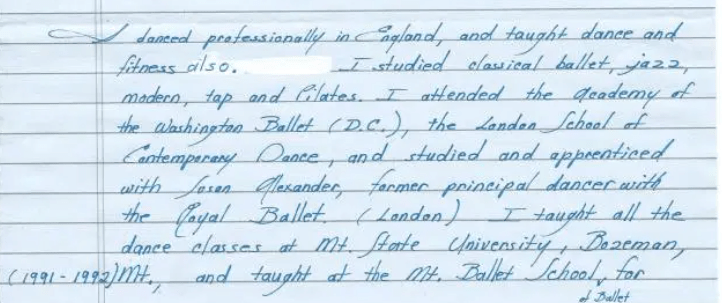 I danced professionally in England, and taught dance and
fitness also. I studied classical ballet, jazz,
modern, tap and Pilates. I attended the Academy of
the Washington Ballet (D.C.), the London School of
Contemporary Dance, and studied and apprenticed
with Susan Alexander, former principal dancer with
the Royal Ballet. (London) I taught all the
dance classes at Mt. State University, Bozeman,
(1991-1992) Mt., and taught at the Mt. Ballet School, for
of Ballet